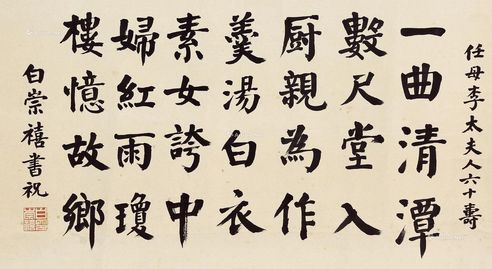 任母李太夫人六十壽
一曲清潭
數尺堂入
厨親為作
羹湯白衣
素女誇中
婦紅雨瓊
樓憶故鄉
白崇禧書祝